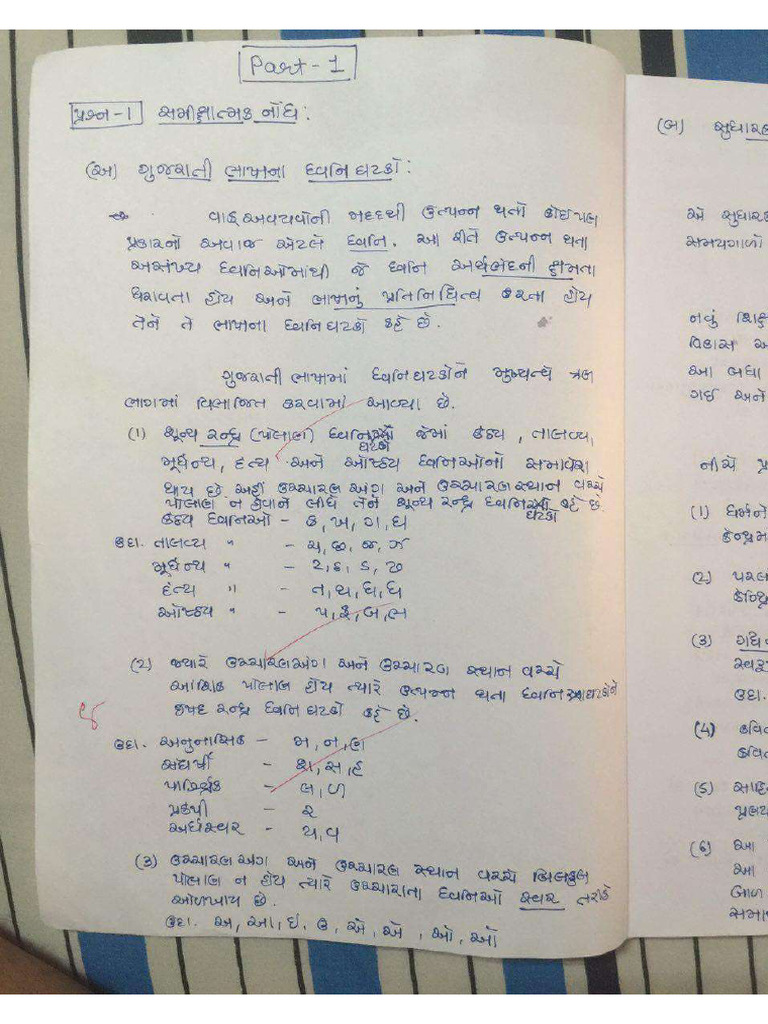 Part - 1
પ્રશ્ન-1 સમીક્ષાત્મક નોંધ :
(અ) ગુજરાતી ભાષાના ધ્વનિ ઘટકો :
વાક્ અવયવોની મદદથી ઉત્પન્ન થતો કોઈપણ
પ્રકારનો અવાજ એટલે ધ્વનિ. આ રીતે ઉત્પન્ન થતા
અસંખ્ય ધ્વનિઓમાંથી જે ધ્વનિ અર્થભેદની ક્ષમતા
ધરાવતા હોય અને ભાષાનું પ્રતિનિધિત્વ કરતા હોય
તેને તે ભાષાના ધ્વનિ ઘટકો કહે છે.
ગુજરાતી ભાષામાં ધ્વનિ ઘટકોને મુખ્યત્વે ત્રણ
ભાગમાં વિભાજિત કરવામાં આવ્યા છે.
(1) શૂન્ય રન્ધ્ર (પોલાણ) ધ્વનિ ઘટકો જેમાં કંઠ્ય, તાલવ્ય,
મૂર્ધન્ય, દંત્ય અને ઓષ્ઠ્ય ધ્વનિઓનો સમાવેશ
થાય છે. અહીં ઉચ્ચારણ અંગ અને ઉચ્ચારણ સ્થાન વચ્ચે
પોલાણ ન હોવાને લીધે તેને શૂન્ય રન્ધ્ર ધ્વનિ ઘટકો કહે છે.
કંઠ્ય ધ્વનિઓ - ક, ખ, ગ, ઘ
ઉદા. તાલવ્ય " - ચ, છ, જ, ઝ
મૂર્ધન્ય " - ટ, ઠ, ડ, ઢ
દંત્ય " - ત, થ, દ, ધ
ઓષ્ઠ્ય " - પ, ફ, બ, ભ
(2) જ્યારે ઉચ્ચારણ અંગ અને ઉચ્ચારણ સ્થાન વચ્ચે
આંશિક પોલાણ હોય ત્યારે ઉત્પન્ન થતા ધ્વનિ ઘટકોને
ઇષદ રન્ધ્ર ધ્વનિ ઘટકો કહે છે.
ઉદા. અનુનાસિક - મ, ન, ણ
સંઘર્ષી - શ, સ, હ
પાર્શ્વિક - લ, ળ
પ્રકંપી - ર
અર્ધસ્વર - ય, વ
(3) ઉચ્ચારણ અંગ અને ઉચ્ચારણ સ્થાન વચ્ચે બિલકુલ
પોલાણ ન હોય ત્યારે ઉચ્ચારાતા ધ્વનિઓ સ્વર તરીકે
ઓળખાય છે.
ઉદા. અ, આ, ઇ, ઉ, એ, ઍ, ઓ, ઑ
(બ) સુધારક
એ સુધારક
સમયગાળો
નવું શિક્ષ
વિકાસ અ
આ બધા
ગઈ અને
નીચે પ્ર
(1) ધર્મને
કેન્દ્રમાં
(2) પરલો
(3) ગદ્ય
સ્વર
ઉદા.
(4) કવિ
કવિ
(5) સાહિ
(6) આ
આ
બાળ
સમા